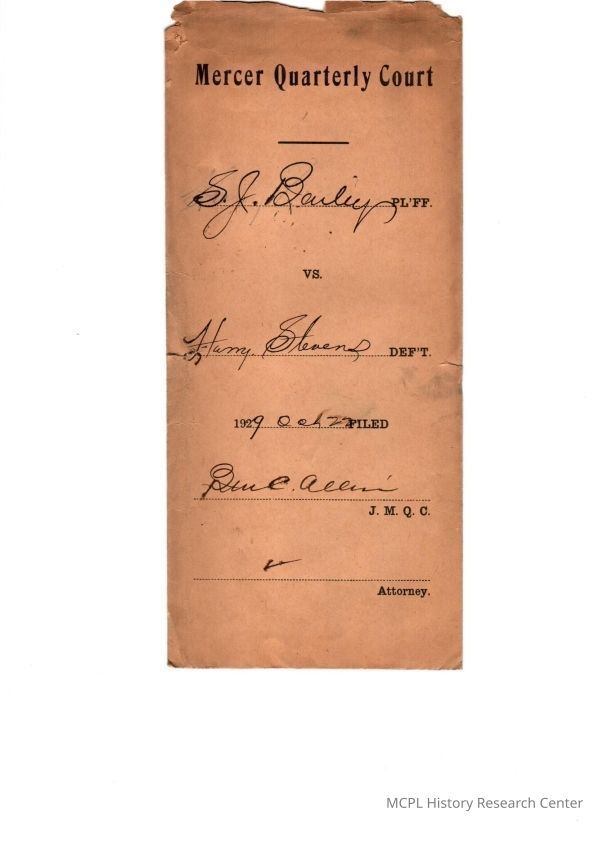 Mercer Quarterly Court
S. J. Bailey PL'FF.
VS.
Harry Stevens DEF'T.
1929 Oct 22 FILED
Ben C. Allin
J. M. Q. C.
Attorney.
MCPL History Research Center